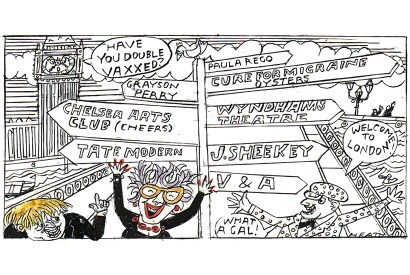 HAVE
YOU DOUBLE
VAXXED?
GRAYSON
PERRY
CHELSEA ARTS
CLUB (CHEERS)
TATE MODERN
PAULA REGO
CURE FOR MIGRAINE
OYSTERS
WYNDHAMS
THEATRE
J. SHEEKEY
V & A
WELCOME
TO
LONDON!
WHAT
A GAL!
HEATH